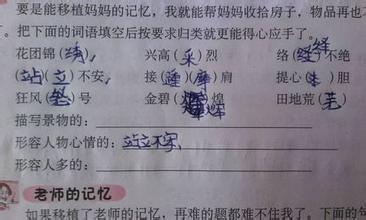 要是能移植妈妈的记忆，我就能帮妈妈收拾房子，物品再也
把下面的词语填空后按要求归类就更能得心应手了。
花团锦(绣) 兴高(采)烈 络(绎)不绝
(站)(立)不安 接(踵)(摩)肩 提心( )胆
狂风( )号 金碧( )煌 辉 田地荒(芜)
描写景物的:
形容人物心情的: 站立不安,
形容人多的:
老师的记忆
如果移植了老师的记忆，再难的题都难不住我了。下面的句